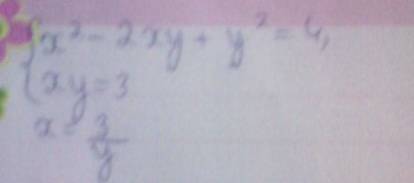 x² - 2xy + y² = 4,
xy = 3
x = 3/y